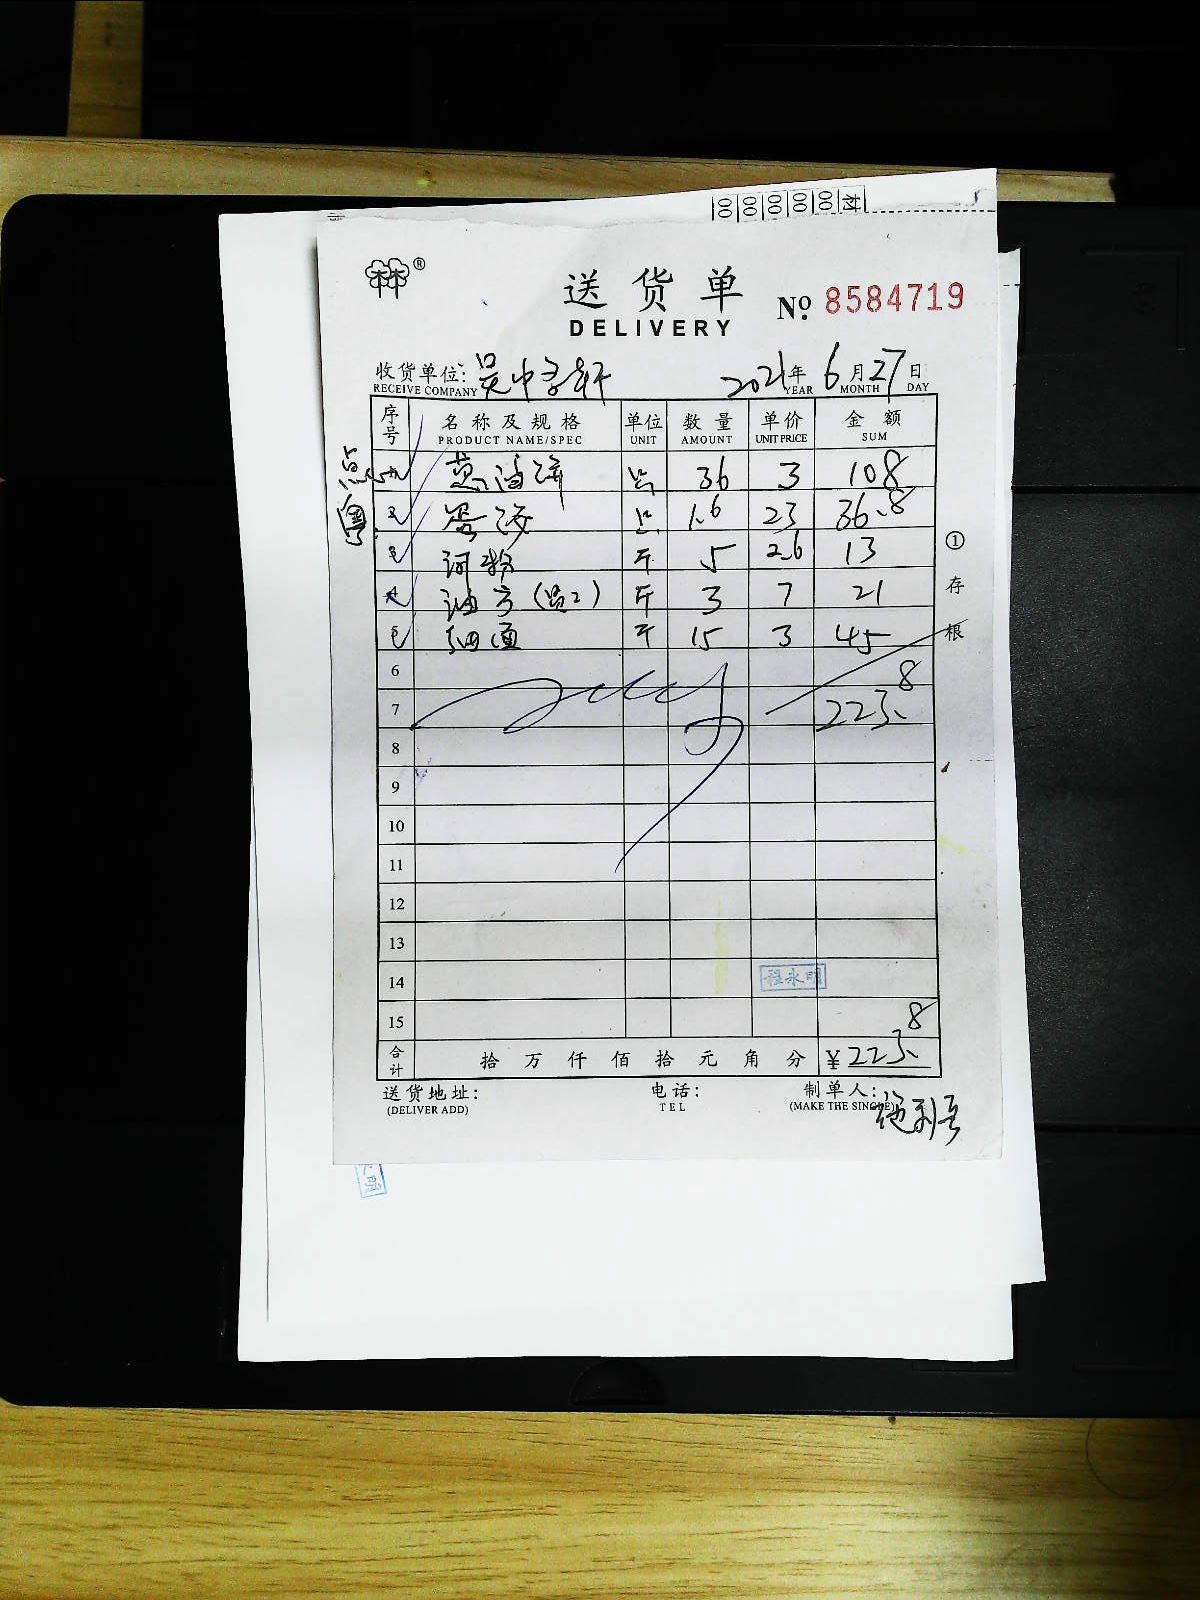 材 00 00 00 00 00
林®
送货单
DELIVERY
№ 8584719
收货单位: 吴中
RECEIVE COMPANY
2021年6月27日
YEAR MONTH DAY
序号 名称及规格 单位 数量 单价 金额
PRODUCT NAME/SPEC UNIT AMOUNT UNIT PRICE SUM
1 葱油饼 只 36 3 108
2 1.6 23 36.8
3 河粉 斤 5 2.6 13
4 油方 斤 3 7 21
5 细面 斤 15 3 45
6
7 223.8
8
9
10
11
12
13
14 程永明
15
合计 拾万仟佰拾元角分 ¥223.8
送货地址: 电话: 制单人:
(DELIVER ADD) TEL (MAKE THE SINGLE)
①存根
面点